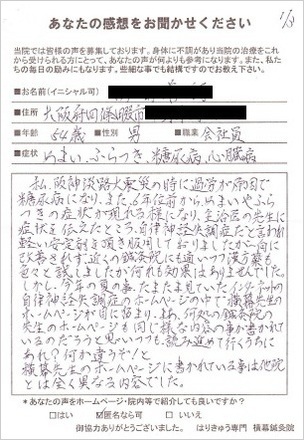 1/3
あなたの感想をお聞かせください
当院では皆様の声を募集しております。身体に不調があり当院の治療をこれから受けられる方にとって、あなたの声が何よりも参考になります。また、私たちの毎日の励みにもなります。些細な事でも結構ですのでお教え下さい。
■お名前(イニシャル可)
■住所 大阪府四條畷市
■年齢 54歳 ■性別 男 ■職業 会社員
■症状 めまい、ふらつき、糖尿病、心臓病
私、阪神淡路大震災の時に過労が原因で
糖尿病になり、また、6年位前から、めまいやふら
つきの症状が現れる様になり、主治医の先生に
症状を伝えたところ、自律神経失調症だと言われ
軽い安定剤を頂き服用しておりましたが一向に
改善されず、近くの鍼灸院にも通いつつ漢方薬も
色々と試しましたが何れも効果はありませんでした。
しかし、今年の夏の事、たまたま見ていたインターネットの
自律神経失調症のホームページの中で横幕先生の
ホームページが目に留まり、まあ、何処の鍼灸院の
先生のホームページも同じ様な内容の事が書かれて
いるのだろうと思いつつも読み進めて行くうちに
あれ?何か違うぞ!と
横幕先生のホームページに書かれている事は他院
とは全く異なる内容でした。
*あなたの声をホームページ・院内等で紹介しても良いですか?
□はい ☑匿名なら可 □いいえ
御協力ありがとうございました。 はりきゅう専門 横幕鍼灸院